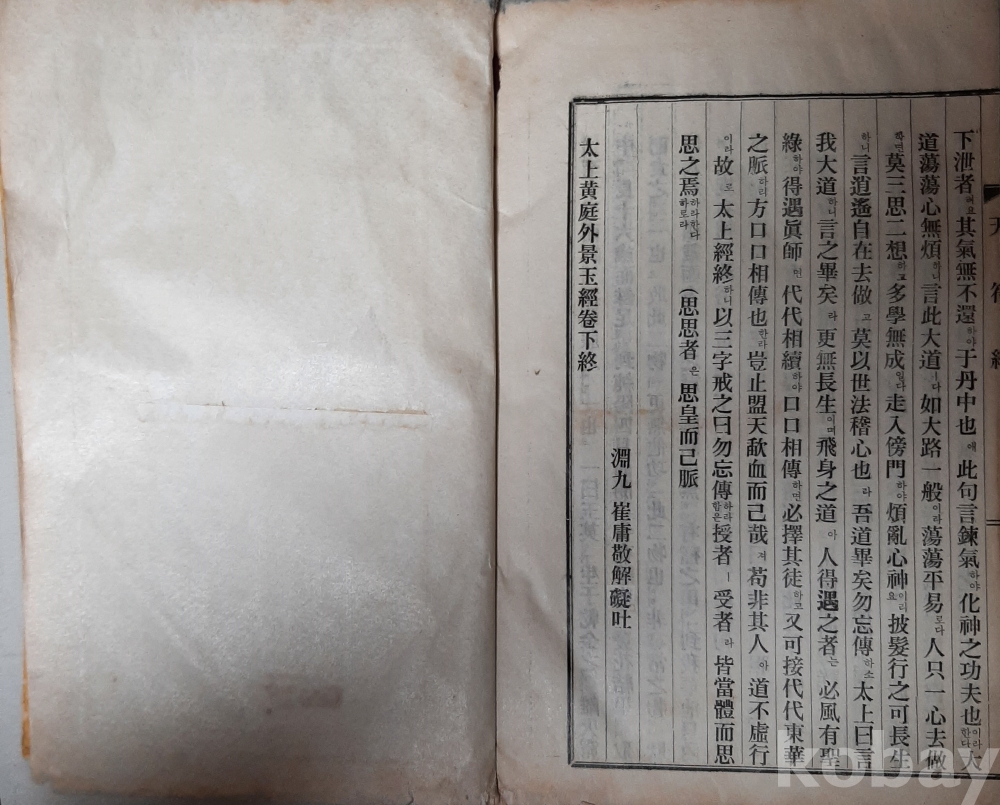 下泄者여요其氣無不還하야于丹中也애此句言鍊氣하야化神之功夫也이라한다大
道蕩蕩心無煩하니言此大道ㅣ다如大路一般이라蕩蕩平易로다人只一心去做
학면莫三思二想하고多學無成일다走入傍門하야煩亂心神이리요披髮行之可長生
하니言逍遙自在去做고莫以世法稽心也라吾道畢矣勿忘傳하소太上曰言
我大道하니言之畢矣라更無長生이며飛身之道아人得遇之者는必風有聖
綠하야得遇眞師면代代相續하야口口相傳하면必擇其徒하고又可接代代東華
之脈하리方口口相傳也한라豈止盟天歃血而己哉저苟非其人아道不虛行
이라故로太上經終하니以三字戒之曰勿忘傳하라함은授者ㅣ受者라皆當體而思
思之焉하라한다하로라(思思者은思皇而己脈
淵九崔庸敬解礙吐
太上黄庭外景玉經卷下終
天符經
kobay